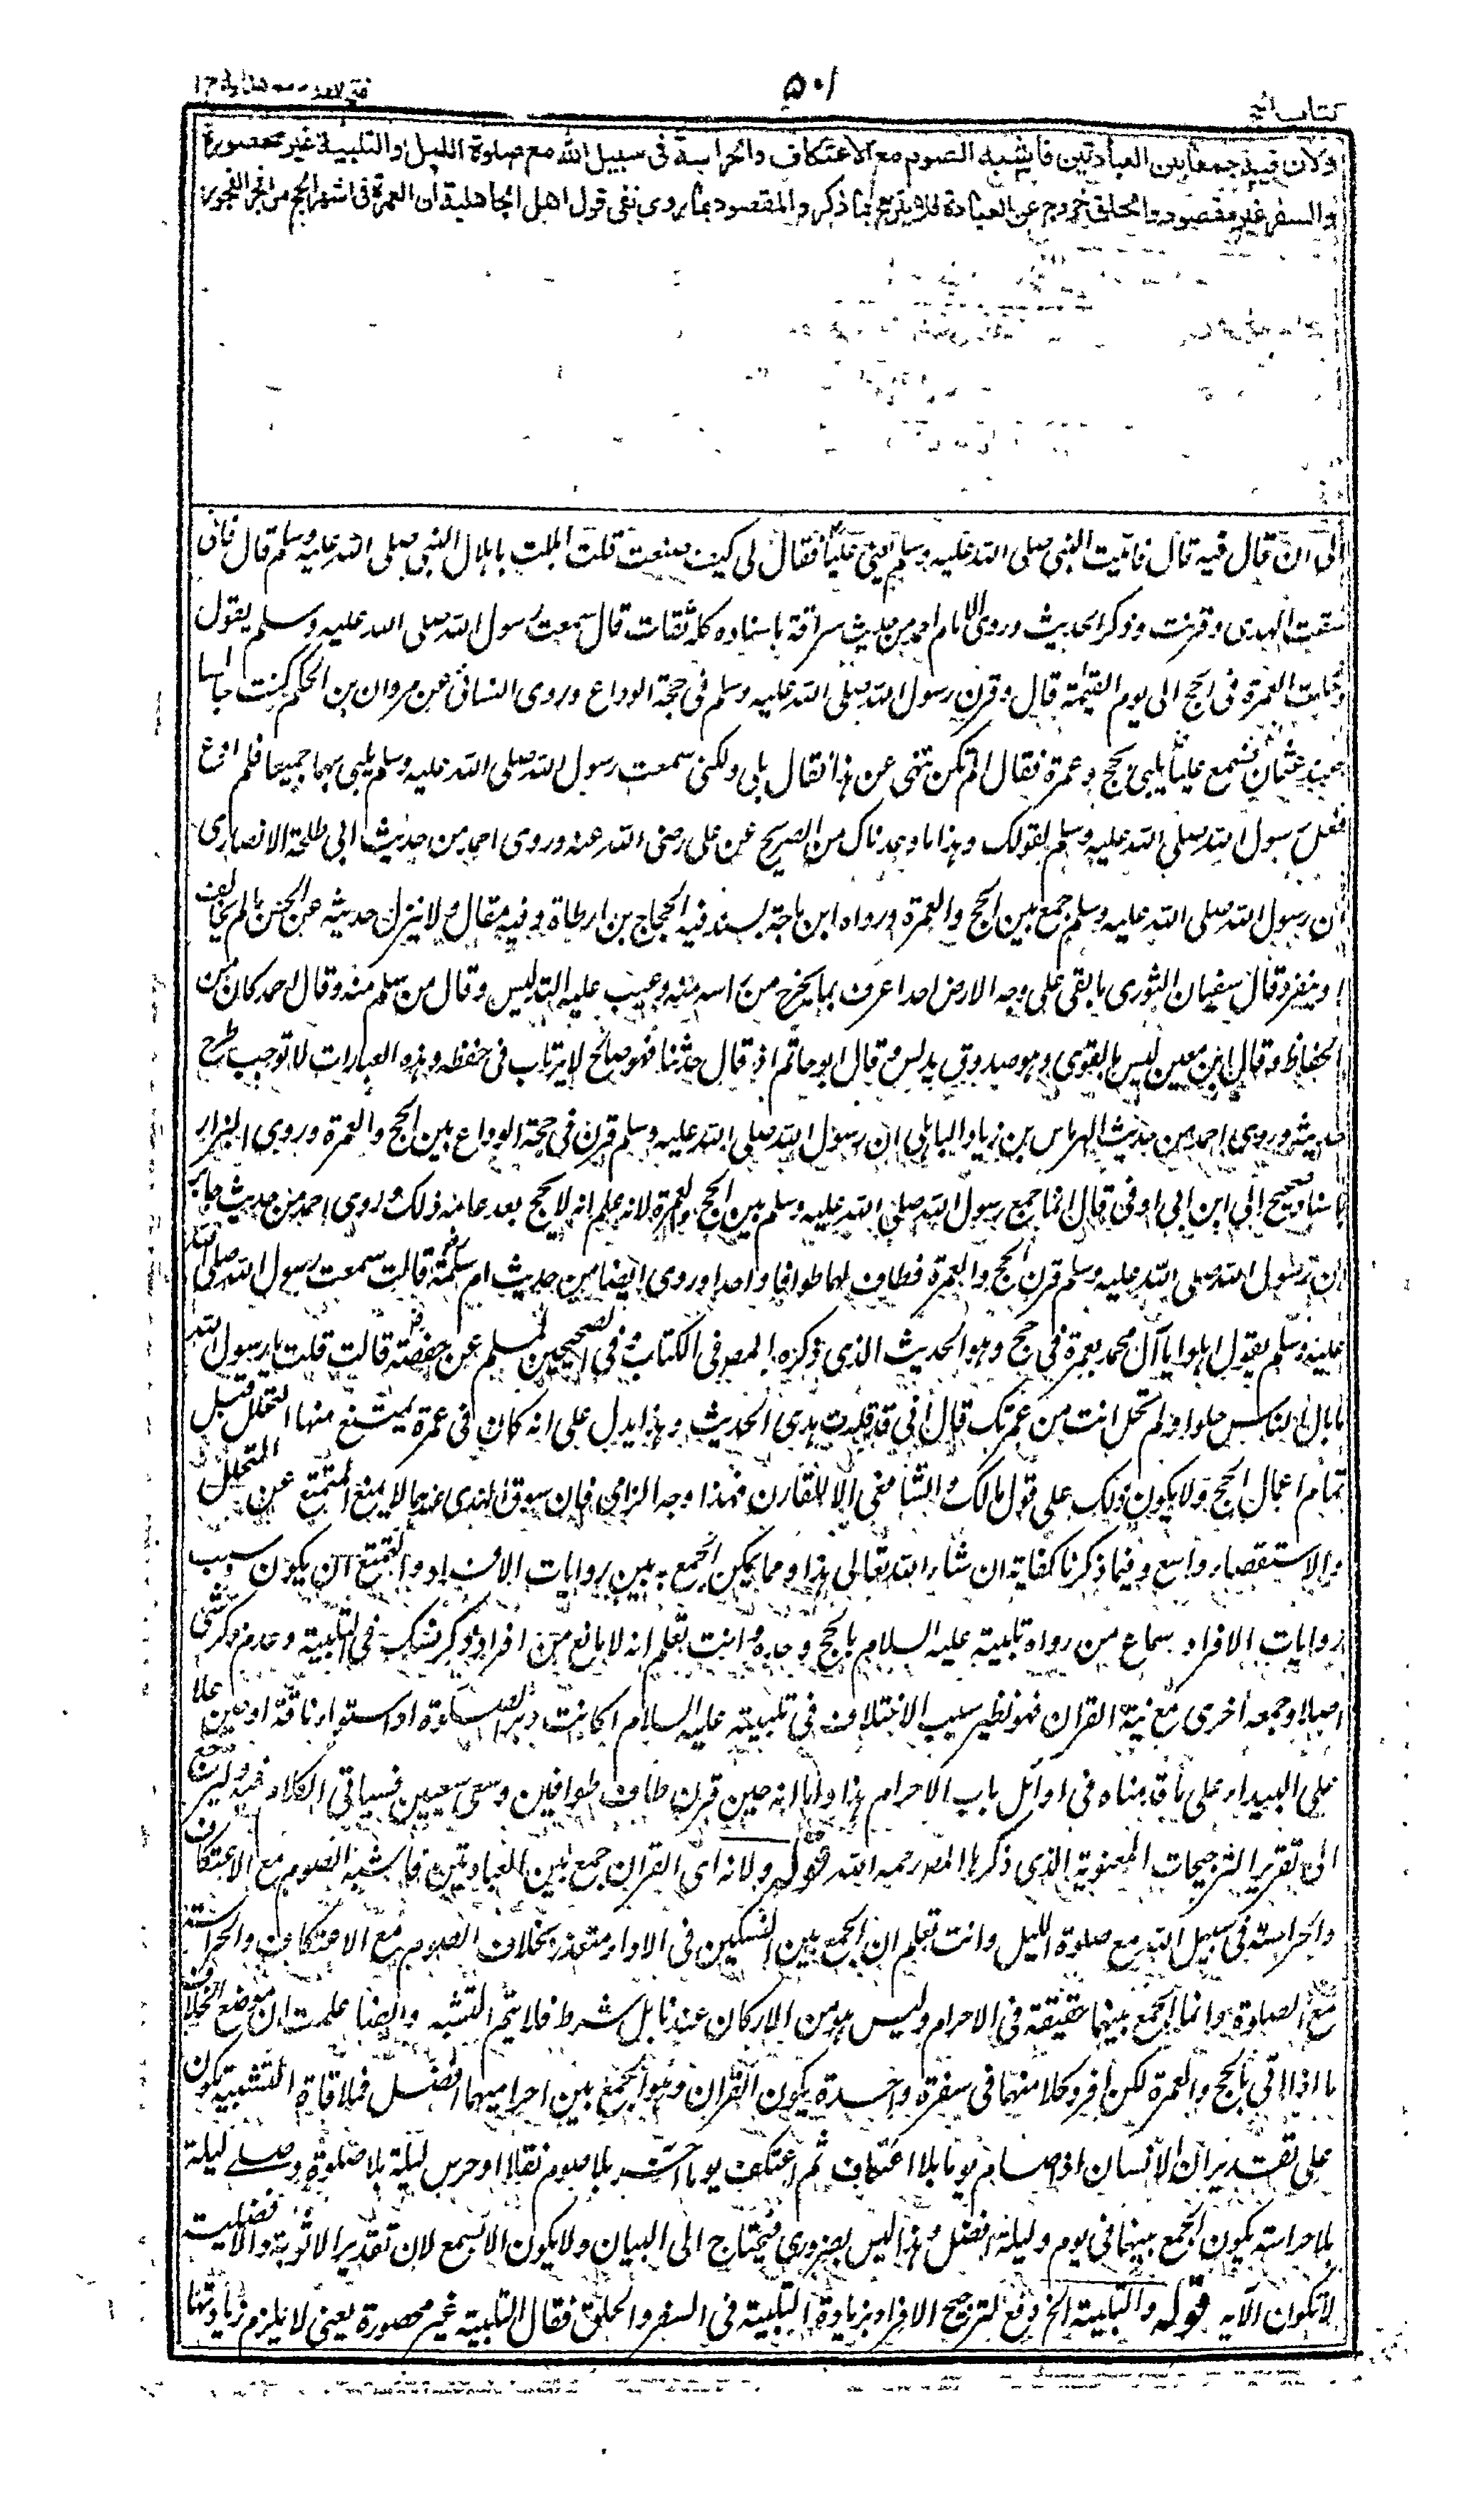 كتاب الحج
٥٠١
ولان فيه جمعا بين العبادتين فاشبه الصوم مع الاعتكاف والحراسة فى سبيل الله مع صلوة الليل والتلبية غير محصورة
والسفر غير مقصود والحلق خروج عن العبادة فلا يترجح بما ذكر والمقصود بما روى نفى قول اهل الجاهلية ان العمرة فى اشهر الحج من افجر الفجور
الى ان قال فيه قال فاتيت النبى صلى الله عليه وسلم يعنى عليا فقال لى كيف صنعت قلت اهللت باهلال النبى صلى الله عليه وسلم قال فانى
سقت الهدى وقرنت وذكر الحديث وروى الامام احمد من حديث سراقة باسناده كله ثقات قال سمعت رسول الله صلى الله عليه وسلم يقول
دخلت العمرة فى الحج الى يوم القيمة قال وقرن رسول الله صلى الله عليه وسلم فى حجة الوداع وروى النسائى عن مروان بن الحكم كنت جالسا
عند عثمان فسمع عليا يلبى بحج وعمرة فقال الم تكن تنهى عن هذا فقال بلى ولكنى سمعت رسول الله صلى الله عليه وسلم يلبى بهما جميعا فلم ادع
فعل رسول الله صلى الله عليه وسلم لقولك وهذا ما وعدناك من الصريح عن على رضى الله عنه وروى احمد من حديث ابى طلحة الانصارى
ان رسول الله صلى الله عليه وسلم جمع بين الحج والعمرة ورواه ابن ماجة بسند فيه الحجاج بن ارطاة وفيه مقال ولا ينزل حديثه عن الحسن ما لم يخالف
او ينفرد قال سفيان الثورى ما بقى على وجه الارض احد اعرف بما يخرج من راسه منه وعيب عليه التدليس وقال من سلم منه وقال احمد كان من
الحفاظ وقال ابن معين ليس بالقوى وهو صدوق يدلس وقال ابو حاتم اذ قال حدثنا فهو صالح لا يرتاب فى حفظه وهذه العبارات لا توجب طرح
حديثه وروى احمد من حديث الهرماس بن زياد الباهلى ان رسول الله صلى الله عليه وسلم قرن فى حجة الوداع بين الحج والعمرة وروى البزار
باسناد صحيح الى ابن ابى اوفى قال انما جمع رسول الله صلى الله عليه وسلم بين الحج والعمرة لانه علم انه لا يحج بعد عامه ذلك وروى احمد من حديث جابر
ان رسول الله صلى الله عليه وسلم قرن الحج والعمرة فطاف لهما طوافا واحدا وروى ايضا من حديث ام سلمة قالت سمعت رسول الله صلى الله
عليه وسلم يقول اهلوا يا آل محمد بعمرة فى حج وهو الحديث الذى ذكره المصر فى الكتاب وفى الصحيحين لمسلم عن حفصة قالت قلت يا رسول الله
ما بال الناس حلوا ولم تحل انت من عمرتك قال انى قد قلدت هدى الحديث وهذا يدل على انه كان فى عمرة يمتنع منها التحلل قبل
تمام اعمال الحج ولا يكون ذلك على قول مالك والشافعى الا للقارن فهذا وجه الزامى فان سوق الهدى عندهما لا يمنع المتمتع عن التحلل
والاستقصاء واسع وفيما ذكرنا كفاية ان شاء الله تعالى هذا ومما يمكن الجمع به بين روايات الافراد والتمتع ان يكون سبب
روايات الافراد سماع من رواه تلبيته عليه السلام بالحج وحده وانت تعلم انه لا مانع من افراد ذكر نسك فى التلبية وعدم ذكر شئ
اصلا وجمعه اخرى مع نية القران فهو نظير سبب الاختلاف فى تلبيته عليه السلام اكانت دبر الصلوة او استواء ناقته او حين علا
على البيداء على ما قدمناه فى اوائل باب الاحرام هذا واما انه حين قرن طاف طوافين وسعى سعيين فسياتى الكلام فيه ولنرجع
الى تقرير الترجيحات المعنوية الذى ذكرها المصر رحمه الله قوله ولانه اى القران جمع بين العبادتين فاشبه الصوم مع الاعتكاف
والحراسة فى سبيل الله مع صلوة الليل وانت تعلم ان الجمع بين النسكين فى الاداء متعذر بخلاف الصوم مع الاعتكاف والحراسة
مع الصلوة وانما الجمع بينهما حقيقة فى الاحرام وليس هو من الاركان عندنا بل شرط فلا يتم التشبه وايضا علمت ان موضع الخلاف
ما اذا اتى بالحج والعمرة لكن افرد كلا منهما فى سفرة واحدة يكون القران وهو الجمع بين احراميهما افضل فملاقاة التشبيه تكون
على تقدير ان الانسان اذا صام يوما بلا اعتكاف ثم اعتكف يوما آخر بلا صوم نقلا او حرس ليلة بلا صلوة وصلى ليلة
بلا حراسة يكون الجمع بينهما فى يوم وليلة افضل وهذا ليس بضرورى فيحتاج الى البيان ولا يكون الا بسمع لان تقدير الاثوبة والافضلية
لا تكون الا به قوله والتلبية الخ دفع لترجيح الافراد بزيادة التلبية فى السفر والحلق فقال التلبية غير محصورة يعنى لا يلزم زيادتها